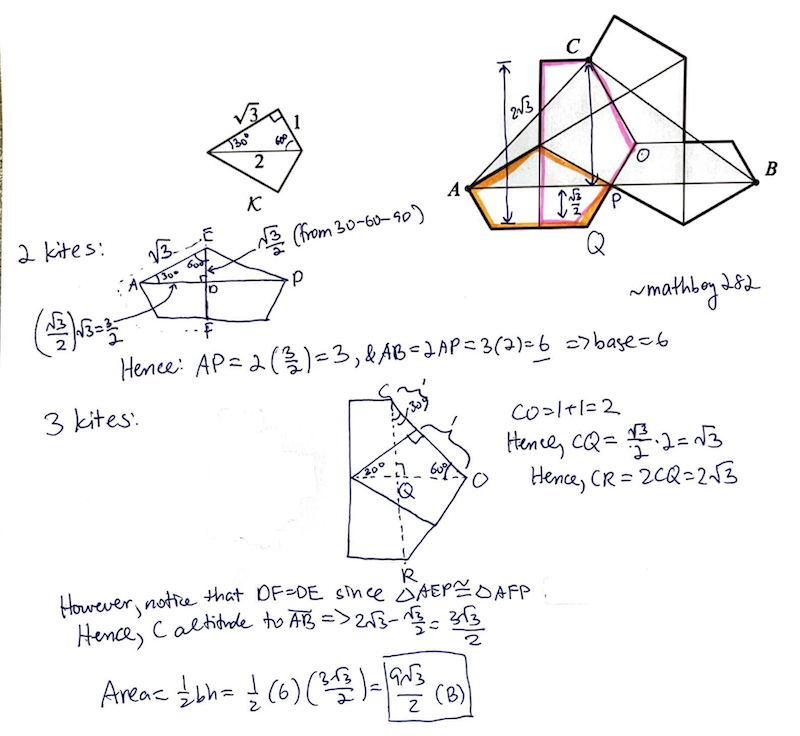 C
2√3
√3
1
30°
60°
2
K
O
A
B
√3/2
P
Q
~mathboy282
2 kites:
√3
E
√3/2 (from 30-60-90)
60°
A
30°
D
P
(√3/2)√3=3/2
F
Hence: AP=2(3/2)=3, & AB=2AP=3(2)=6 => base=6
3 kites:
C
1
30°
1
CO=1+1=2
Hence, CQ=√3/2·2=√3
Hence, CR=2CQ=2√3
60°
Q
O
R
However, notice that DF=DE since △AEP≅△AFP.
Hence, C altitude to AB => 2√3-√3/2=3√3/2
Area=1/2bh=1/2(6)(3√3/2)=9√3/2 (B)